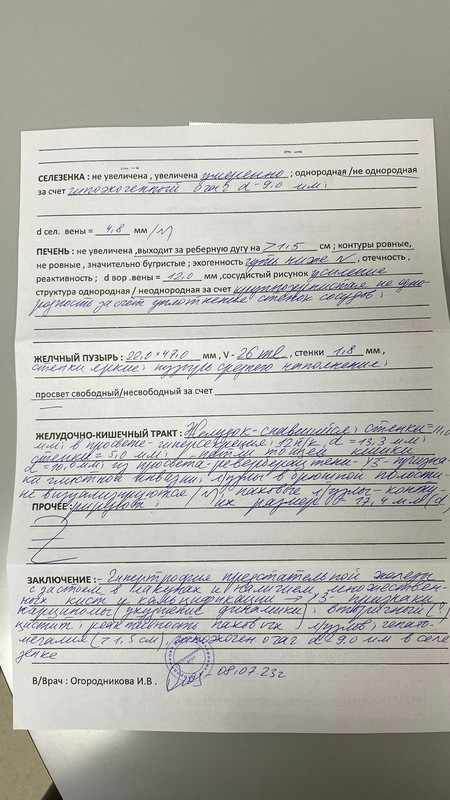 СЕЛЕЗЕНКА : не увеличена , увеличена умеренно ; однородная /не однородная
за счет гипоэхогенный очаг d-9.0 мм;
d сел. вены = 4,8 мм /N
ПЕЧЕНЬ : не увеличена ,выходит за реберную дугу на >1,5 см ; контуры ровные,
не ровные , значительно бугристые ; эхогенность чуть ниже N , отечность ,
реактивность ; d вор .вены = 12,0 мм ,сосудистый рисунок усиление
структура однородная / неоднородная за счет крупноячеистая не одно-
родность за счёт уплотнение стенок сосудов;
ЖЕЛЧНЫЙ ПУЗЫРЬ : 22,0×47,0 мм , V - 26 ml , стенки 1,8 мм ,
стенки яркие; пузырь среднего наполнения;
просвет свободный/несвободный за счет
ЖЕЛУДОЧНО-КИШЕЧНЫЙ ТРАКТ : Желудок-спавшийся; стенки=11,0
мм; в просвете-гиперсекреция; 12п/к d = 13,3 мм;
стенки=5,0 мм; петли тощей кишки
d=10.0мм; из просвета-реверберац тени-УЗ-призна-
ки глистной инвазии; л/узлы в брюшной полости-
не визуализируются /N; паховые л/узлы-
ПРОЧЕЕ : их размер до 17,4 мм (d)
ЗАКЛЮЧЕНИЕ : - Гипертрофия предстательной железы
с застоем в лакунах и наличием множествен-
ных кист и кальцификации - УЗ-признаки
карциномы (ухудшение динамики); вторичный (?)
цистит; реактивность паховых л/узлов; гепато-
мегалия (>1,5 см); гипоэхоген очаг d-9.0 мм в селе-
зенке
В/Врач : Огородникова И.В . 08.07.23г